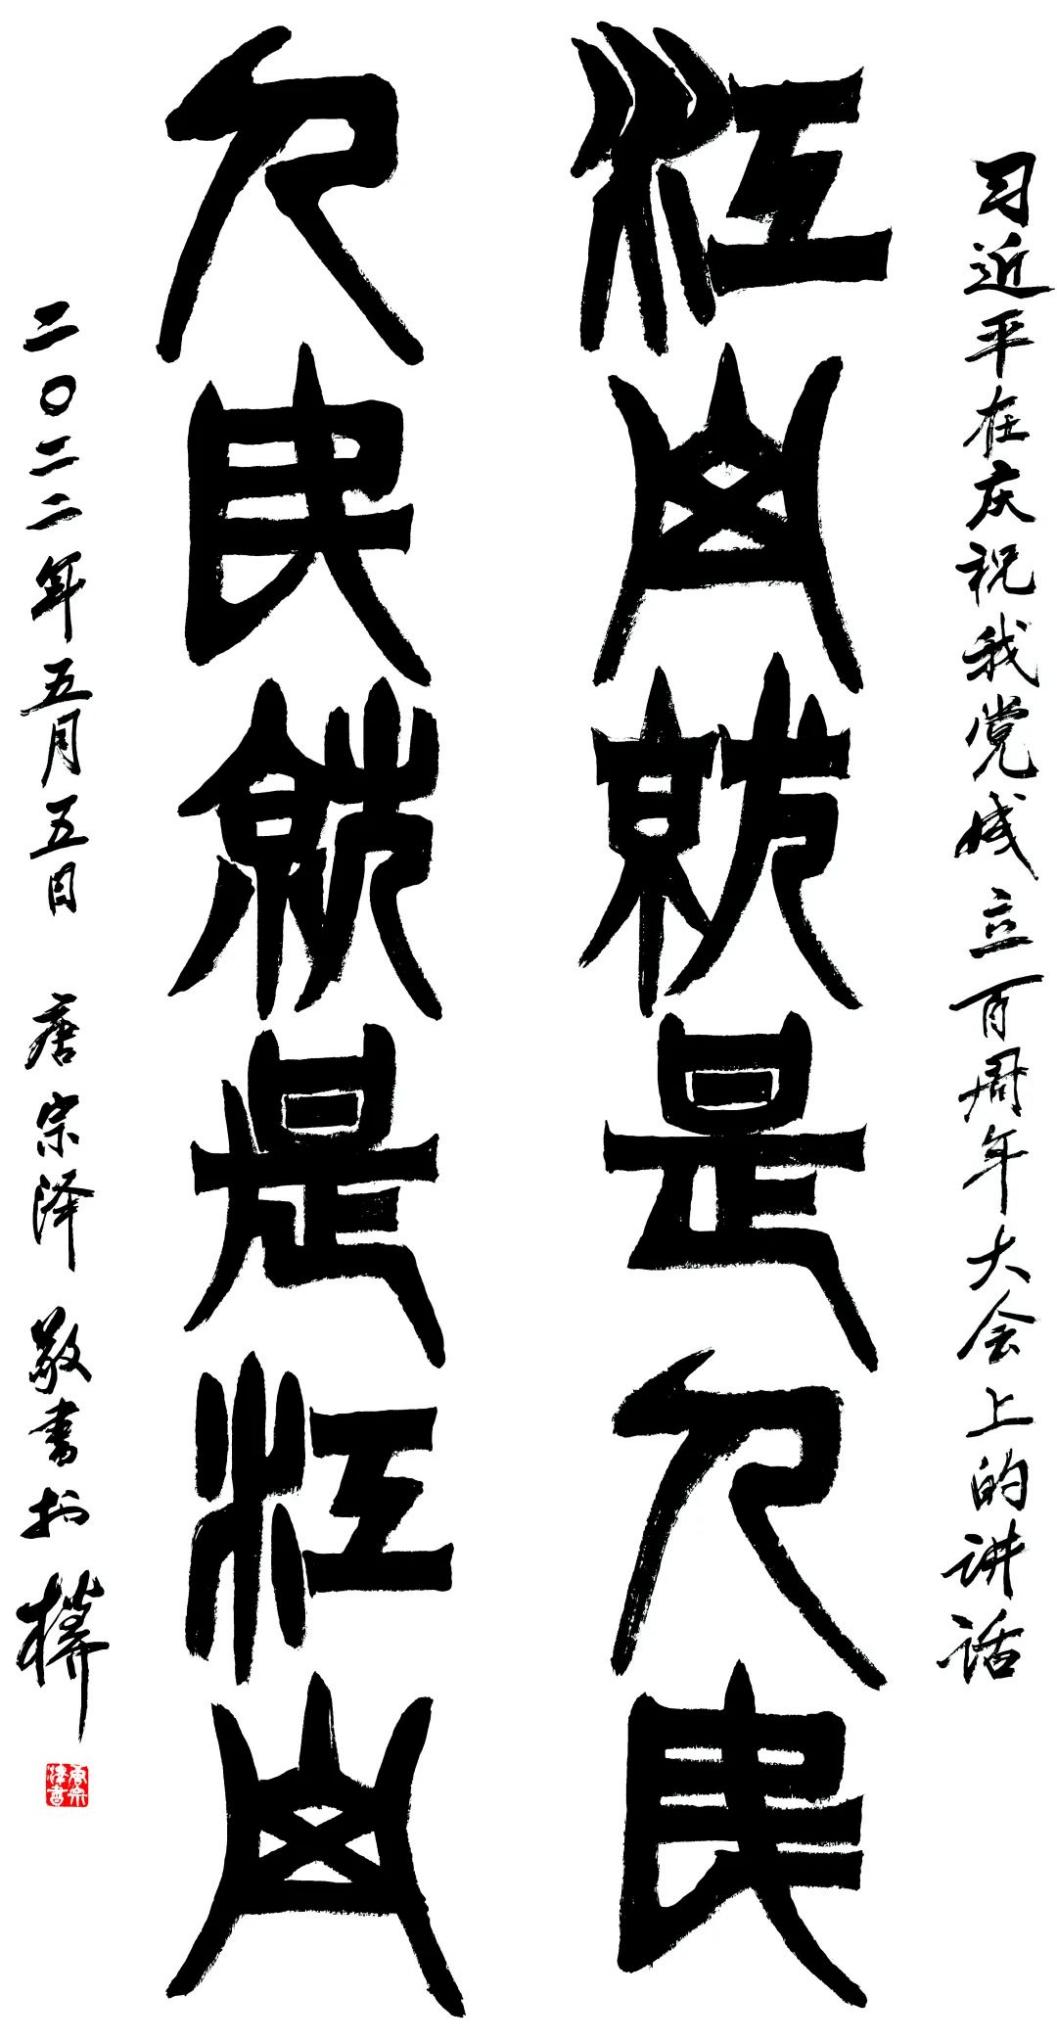 习近平在庆祝我党成立百周年大会上的讲话
江山就是人民
人民就是江山
二〇二二年五月五日 唐宗泽 敬书于